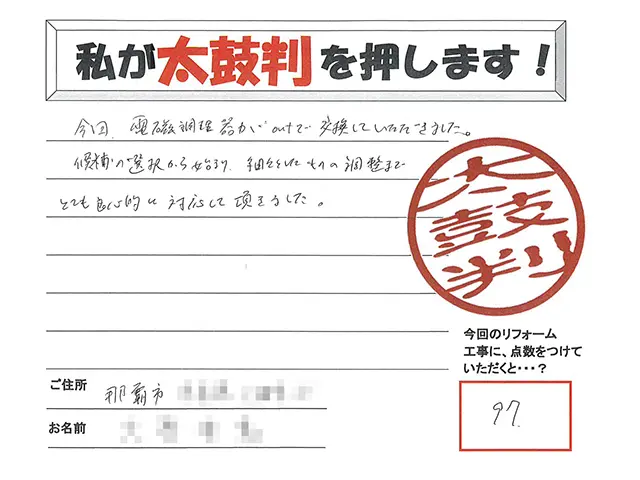 私が太鼓判を押します！
今回、電磁調理器がoutで交換していただきました。
候補の選択から始まり、細々としたものの調整まで
とても良心的に対応して頂きました。
太鼓判
今回のリフォーム
工事に、点数をつけて
いただくと・・・？
ご住所 那覇市
お名前
97.